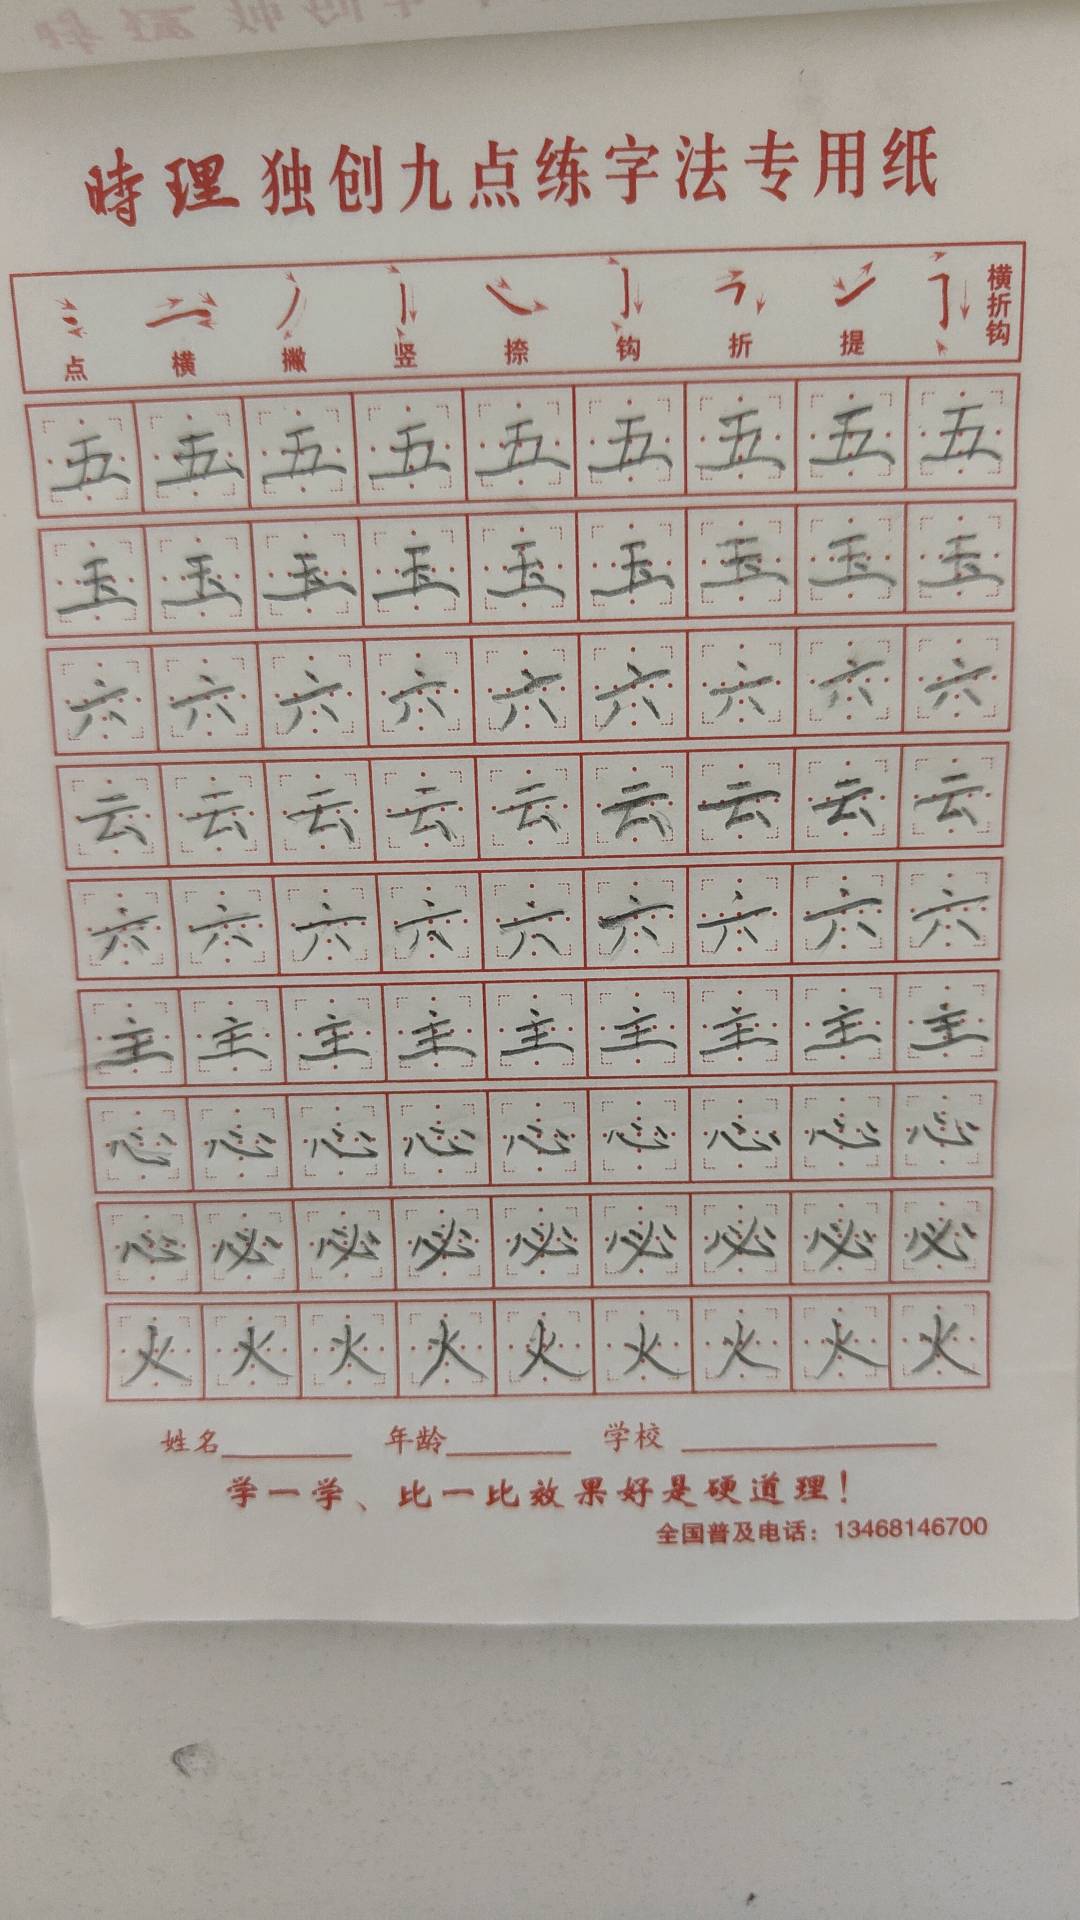 時理 独创九点练字法专用纸
点 横 撇 竖 捺 钩 折 提 横折钩
五 五 五 五 五 五 五 五 五
玉 玉 玉 玉 玉 玉 玉 玉 玉
六 六 六 六 六 六 六 六 六
云 云 云 云 云 云 云 云 云
六 六 六 六 六 六 六 六 六
主 主 主 主 主 主 主 主 主
心 心 心 心 心 心 心 心 心
必 必 必 必 必 必 必 必 必
火 火 火 火 火 火 火 火 火
姓名 年龄 学校
学一学、比一比效果好是硬道理！
全国普及电话：13468146700